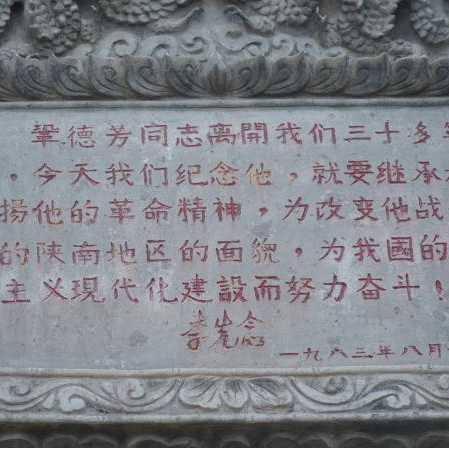 鞏德芳同志离開我们三十多
，今天我们纪念他，就要继承
揚他的革命精神，为改变他战
的陕南地区的面貌，为我國的
主义現代化建設而努力奋斗！
李先念
一九八三年八月